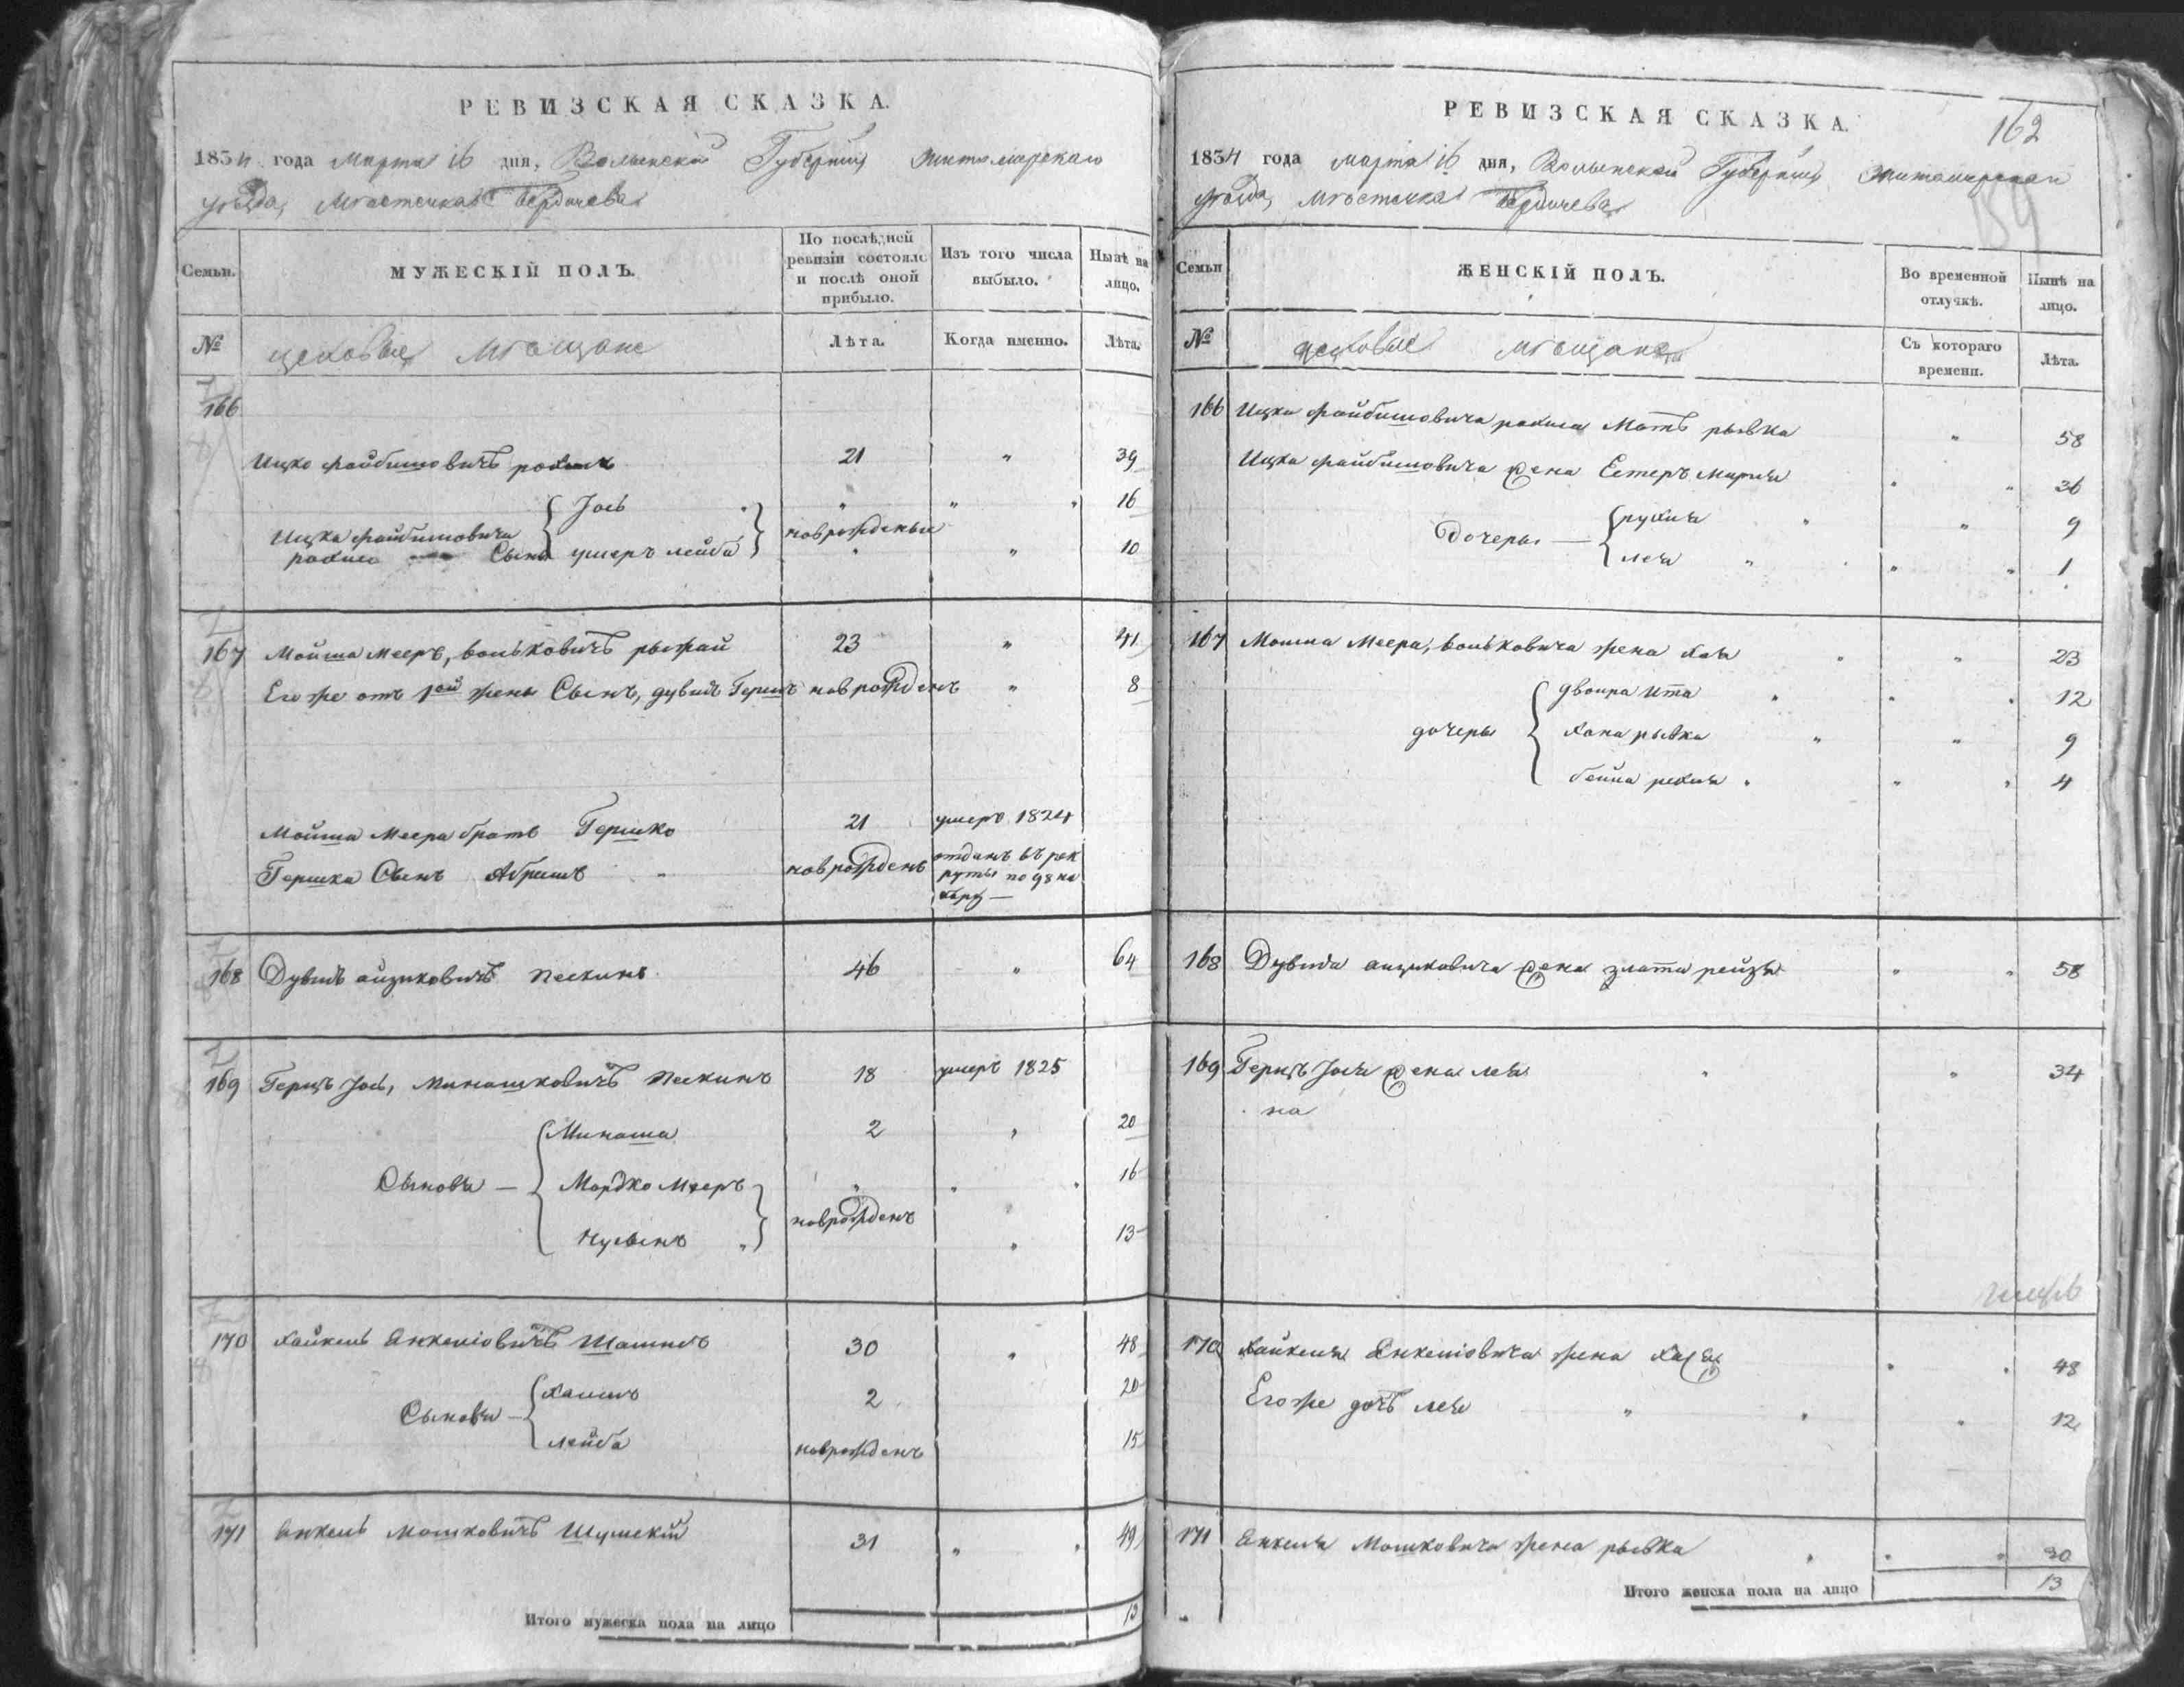 РЕВИЗСКАЯ СКАЗКА.
1834 года Марта 16 дня, Волынской Губерніи Житомирскаго
уѣзда, Мѣстечка Бердичева
Семьи. МУЖЕСКІЙ ПОЛЪ. По послѣдней ревизіи состояло и послѣ оной прибыло. Изъ того числа выбыло. Нынѣ на лицо.
№ цеховые Мѣщане Лѣта. Когда именно. Лѣта.
166
Ицко Файбишовичъ 21 " 39
Іось " " 16
Ицка Файбишовича новрожденые
Сыны умеръ лейба " " 10
167 Мойша Мееръ, вольковичъ рыжай 23 " 41
Его же отъ 1ой жены Сынъ, дувидъ Гершъ новрожденъ " 8
Мойша Меера братъ Гершко 21 умеръ 1824
Гершка Сынъ Абрамъ новрожденъ отданъ въ рек
руты по 98 на
бору
168 Дувидъ айзиковичъ Пескинъ 46 " 64
169 Герцъ Іось, Минашковичъ Пескинъ 18 умеръ 1825
Минаша 2 " 20
Сыновья — Мордко Мееръ " " 16
новрожденъ
Нусынъ " 13
170 Хайкель Янкеліовичъ 30 " 48
Хаимъ 2 20
Сыновья —
лейба новрожденъ 15
171 Янкель Мошковичъ Шумскій 31 " 49
Итого мужеска пола на лицо 13
РЕВИЗСКАЯ СКАЗКА.
162
1834 года марта 16 дня, Волынской Губерніи Житомирскаго
159
уѣзда, мѣстечка Бердичева
Семьи ЖЕНСКІЙ ПОЛЪ. Во временной отлучкѣ. Нынѣ на лицо.
№ цеховые мѣщанки Съ котораго времени. Лѣта.
166 Ицка Файбишовича Мать рывка " 58
Ицка Файбишовича жена Естеръ Маріи " " 36
рухля " " 9
Дочеры —
лея " " " 1
167 Мошка Меера, вольковича жена Хая " " 23
двойра ита " " " 12
дочеры Хана рывка " " 9
бейла рехля " " " 4
168 Дувида айзиковича жена злата рейзя " " 58
169 Герцъ Іося жена лея " " 34
на
170 Хайкеля Янкеліовича жена " " 48
Его же дочь лея " " " 12
171 Янкеля Мошковича жена рывка " " " 30
Итого женска пола на лицо 13